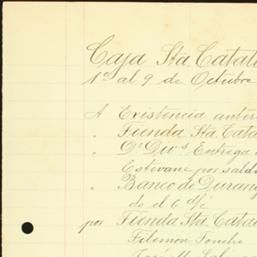 Caja Sta Catal
1º al 9 de Octubre
A Existencia anter
" Tienda Sta Cata
" D. Div.s Entrega
Estevane por sald
" Banco de Durang
de d 6 d/c
por Tienda Sta. Cata
Filemon